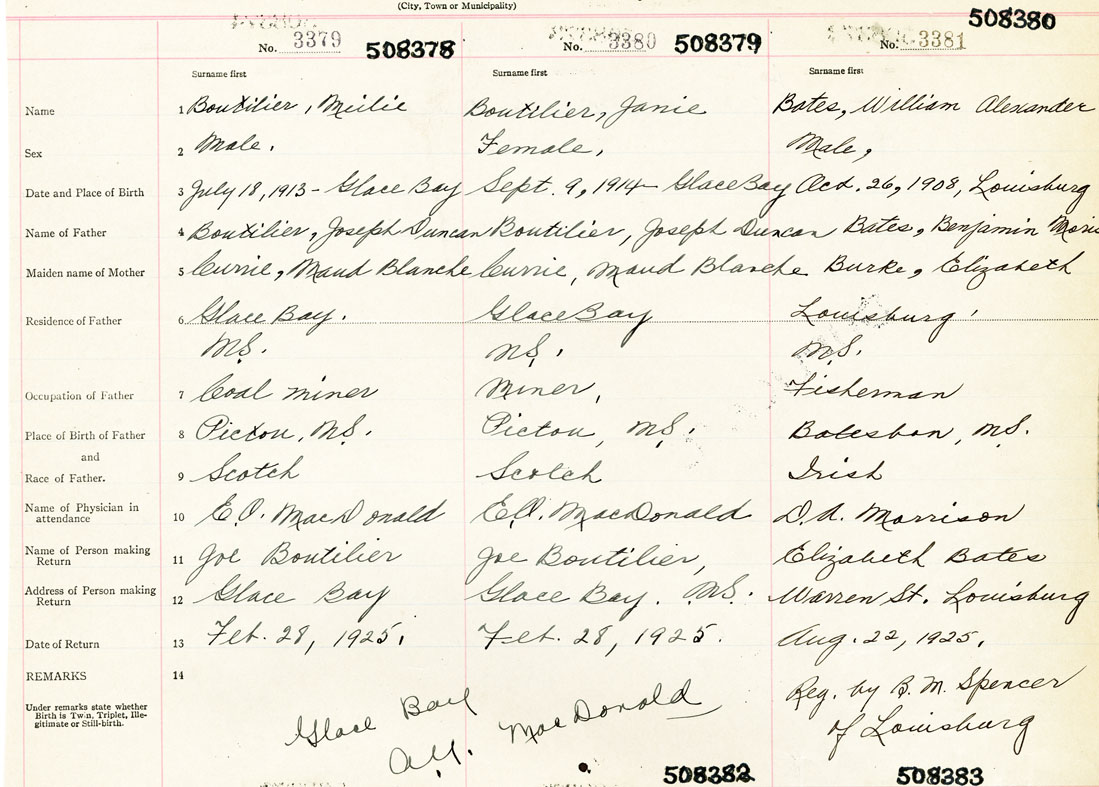 (City, Town or Municipality)
508380
No. 3379 508378 No. 3380 508379 No. 3381
Surname first Surname first Surname first
Name 1 Boutilier, Meilie Boutilier, Janie Bates, William Alexander
Sex 2 Male. Female, Male,
Date and Place of Birth 3 July 18, 1913 - Glace Bay Sept. 9, 1914 - Glace Bay Oct. 26, 1908, Louisburg
Name of Father 4 Boutilier, Joseph Duncan Boutilier, Joseph Duncan Bates, Benjamin
Maiden name of Mother 5 Currie, Maud Blanche Currie, Maud Blanche Burke, Elizabeth
Residence of Father 6 Glace Bay. Glace Bay Louisburg,
N.S. N.S. N.S.
Occupation of Father 7 Coal miner Miner, Fisherman
Place of Birth of Father 8 Pictou, N.S. Pictou, N.S. N.S.
and
Race of Father. 9 Scotch Scotch Irish
Name of Physician in
attendance 10 E.O. MacDonald E.O. MacDonald D.A. Morrison
Name of Person making
Return 11 Joe Boutilier Joe Boutilier, Elizabeth Bates
Address of Person making
Return 12 Glace Bay Glace Bay. N.S. Warren St. Louisburg
Date of Return 13 Feb. 28, 1925. Feb. 28, 1925. Aug. 22, 1925.
REMARKS 14
Under remarks state whether
Birth is Twin, Triplet, Ille-
gitimate or Still-birth.
Reg. by B. M. Spencer
of Louisburg
Glace Bay
MacDonald
508382 508383